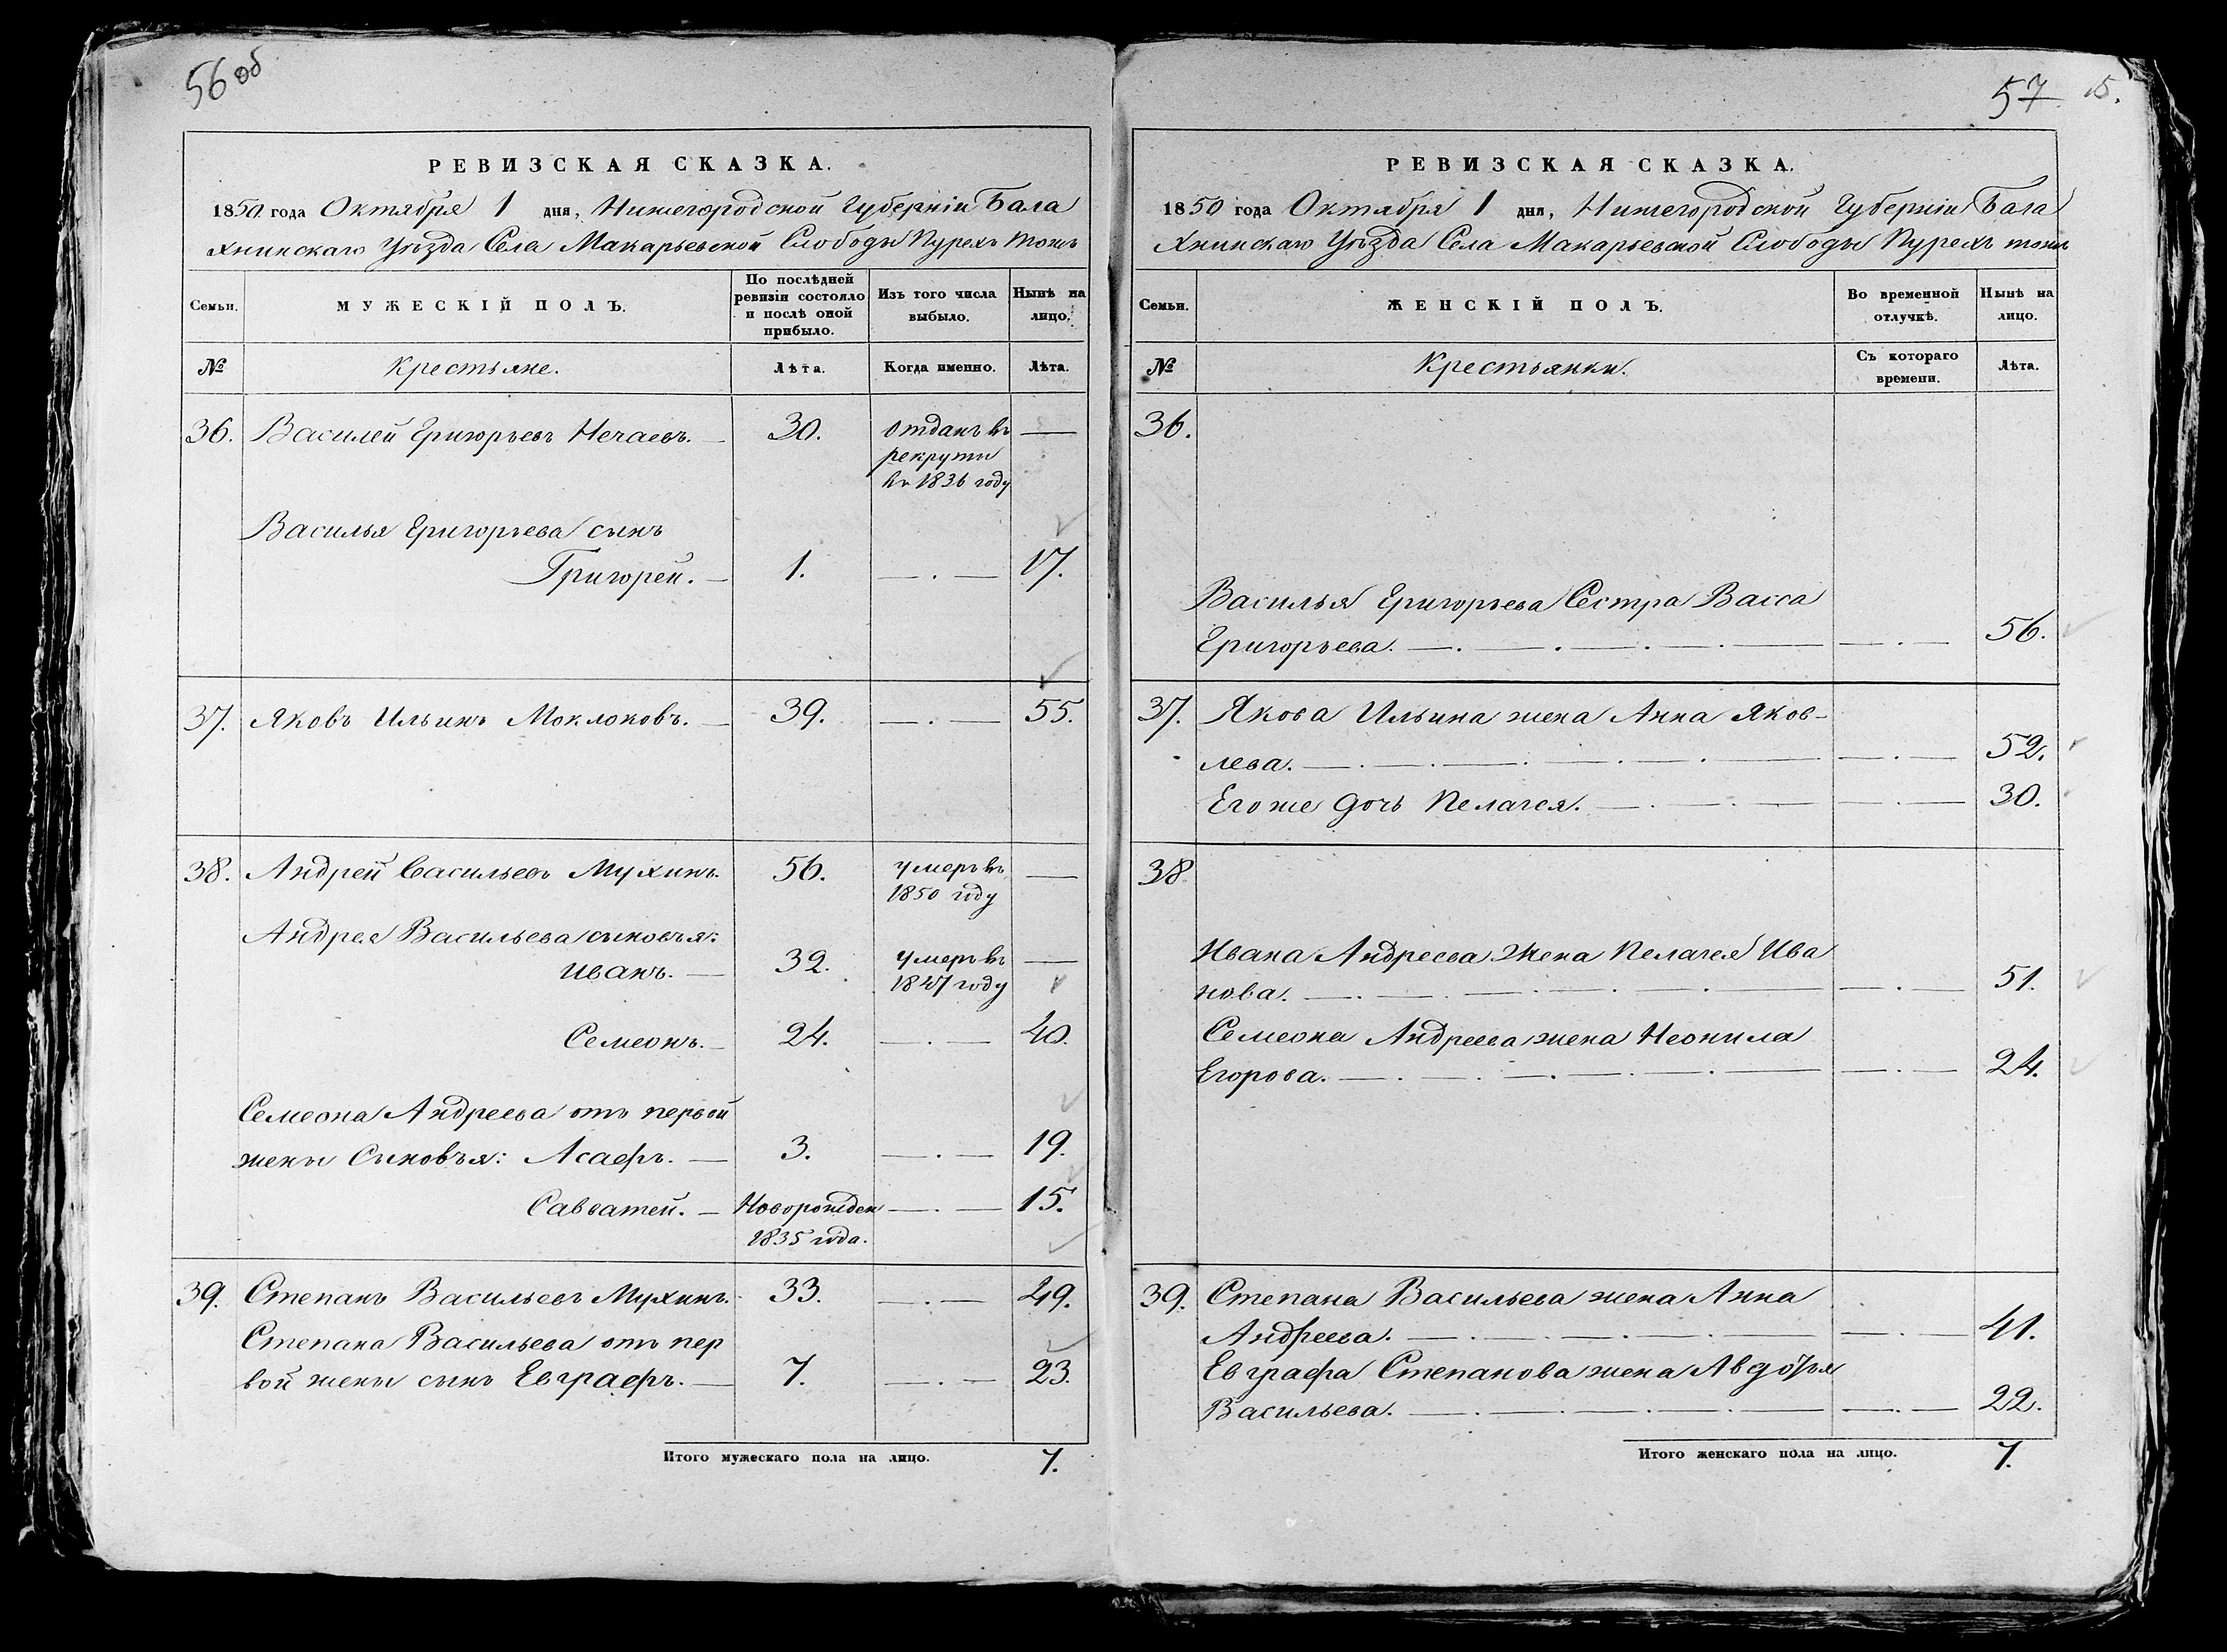 56 об
РЕВИЗСКАЯ СКАЗКА.
1850 года Октября 1 дня, Нижегородской Губерніи Бала
хнинскаго Уѣзда Села Макарьевской Слободы Пурехъ тожъ
Семьи. МУЖЕСКІЙ ПОЛЪ. По послѣдней ревизіи состояло и послѣ оной прибыло. Изъ того числа выбыло. Нынѣ на лицо.
№ Крестьяне. Лѣта. Когда именно. Лѣта.
36. Василей Григорьевъ Нечаевъ. — 30. отданъ въ —
рекруты
въ 1836 году
Василья Григорьева сынъ
Григорей. — 1. — . — 17.
37. Яковъ Ильинъ Моклоковъ. — 39. — . — 55.
38. Андрей Васильевъ Мухинъ. 56. умеръ въ —
1850 году
Андрея Васильева сыновья:
Иванъ. — 32. умеръ въ —
1847 году
Семеонъ. — 24. — . — 40.
Семеона Андреева отъ первой
жены Сыновья: Асафъ. — 3. — . — 19.
Савватей. — Новорожден — . — 15.
1835 года.
39. Степанъ Васильевъ Мухинъ. 33. — . — 49.
Степана Васильева отъ пер
вой жены сынъ Евграфъ. — 7. — . — 23.
Итого мужескаго пола на лицо. 7.
57 15.
РЕВИЗСКАЯ СКАЗКА.
1850 года Октября 1 дня, Нижегородской Губерніи Бала
хнинскаго Уѣзда Села Макарьевской Слободы Пурехъ тожъ
Семьи. ЖЕНСКІЙ ПОЛЪ. Во временной отлучкѣ. Нынѣ на лицо.
№ Крестьянки. Съ котораго времени. Лѣта.
36.
Василья Григорьева Сестра Васса
Григорьева. — . — . — . — . — — . — 56.
37. Якова Ильина жена Анна Яков-
лева. — . — . — . — . — . — — . — 52.
Его же дочь Пелагея. — . — . — — . — 30.
38
Ивана Андреева Жена Пелагея Ива
нова. — . — . — . — . — — . — 51.
Семеона Андреева жена Неонила
Егорова. — . — . — . — . — — . — 24.
39. Степана Васильева жена Анна
Андреева. — . — . — . — . — — . — 41.
Евграфа Степанова жена Авдотья
Васильева. — . — . — . — . — — . — 22.
Итого женскаго пола на лицо. 7.